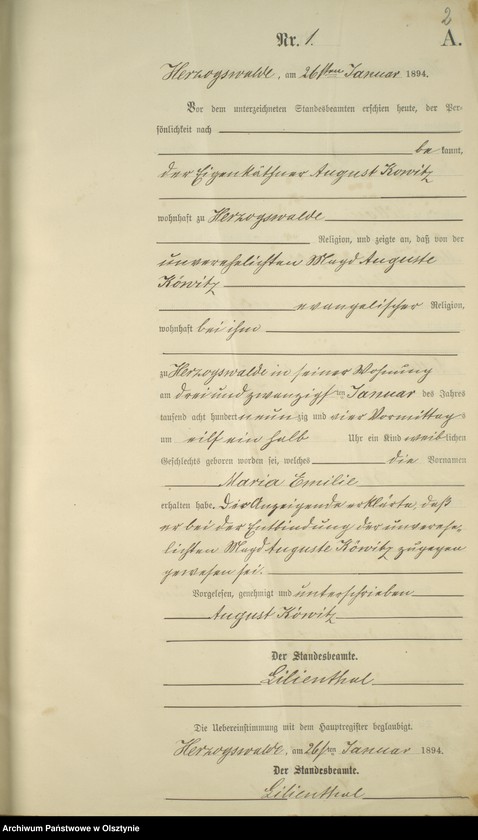 2
Nr. 1. A.
Herzogswalde, am 26sten Januar 1894.
Vor dem unterzeichneten Standesbeamten erschien heute, der Per-
sönlichkeit nach
be kannt,
der Eigenkäthner August Kowitz
wohnhaft zu Herzogswalde
Religion, und zeigte an, daß von der
unverehelichten Magd Auguste
Köwitz
evangelischer Religion,
wohnhaft bei ihm
zu Herzogswalde in seiner Wohnung
am drei und zwanzigsten Januar des Jahres
tausend acht hundert neunzig und vier Vormittags
um eilf ein halb Uhr ein Kind weiblichen
Geschlechts geboren worden sei, welches die Vornamen
Maria Emilie
erhalten habe. Der Anzeigende erklärte, daß
er bei der Entbindung der unverehe-
lichten Magd Auguste Köwitz zugegen
gewesen sei.
Vorgelesen, genehmigt und unterschrieben
August Köwitz
Der Standesbeamte.
Lilienthal
Die Uebereinstimmung mit dem Hauptregister beglaubigt.
Herzogswalde, am 26sten Januar 1894.
Der Standesbeamte.
Lilienthal
Archiwum Państwowe w Olsztynie